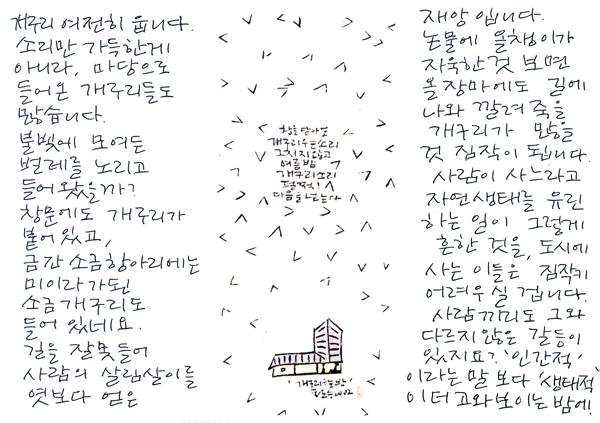 개구리 여전히 웁니다.
소리만 가득한게
아니라, 마당으로
들어온 개구리들도
많습니다.
불빛에 모여든
벌레를 노리고
들어왔을까?
창문에도 개구리가
붙어있고,
금간 소금항아리에는
미이라가 된
소금개구리도
들어 있네요.
길을 잘못들어
사람의 살림살이를
엿보다 얻은
창을 닫아도
개구리 우는 소리
그치지 않고
여름밤
개구리 소리
마음을
재앙입니다.
논물에 올챙이가
자욱한 것 보면
올 장마에도 길에
나와 깔려 죽을
개구리가 많을
것 짐작이 됩니다.
사람이 사느라고
자연생태를 유린
하는 일이 그렇게
흔한 것을, 도시에
사는 이들은 짐작키
어려우실 겁니다.
사람끼리도 그와
다르지 않은 갈등이
있지요? '인간적'
이라는 말 보다 '생태적'
이 더 고와 보이는 밤에!